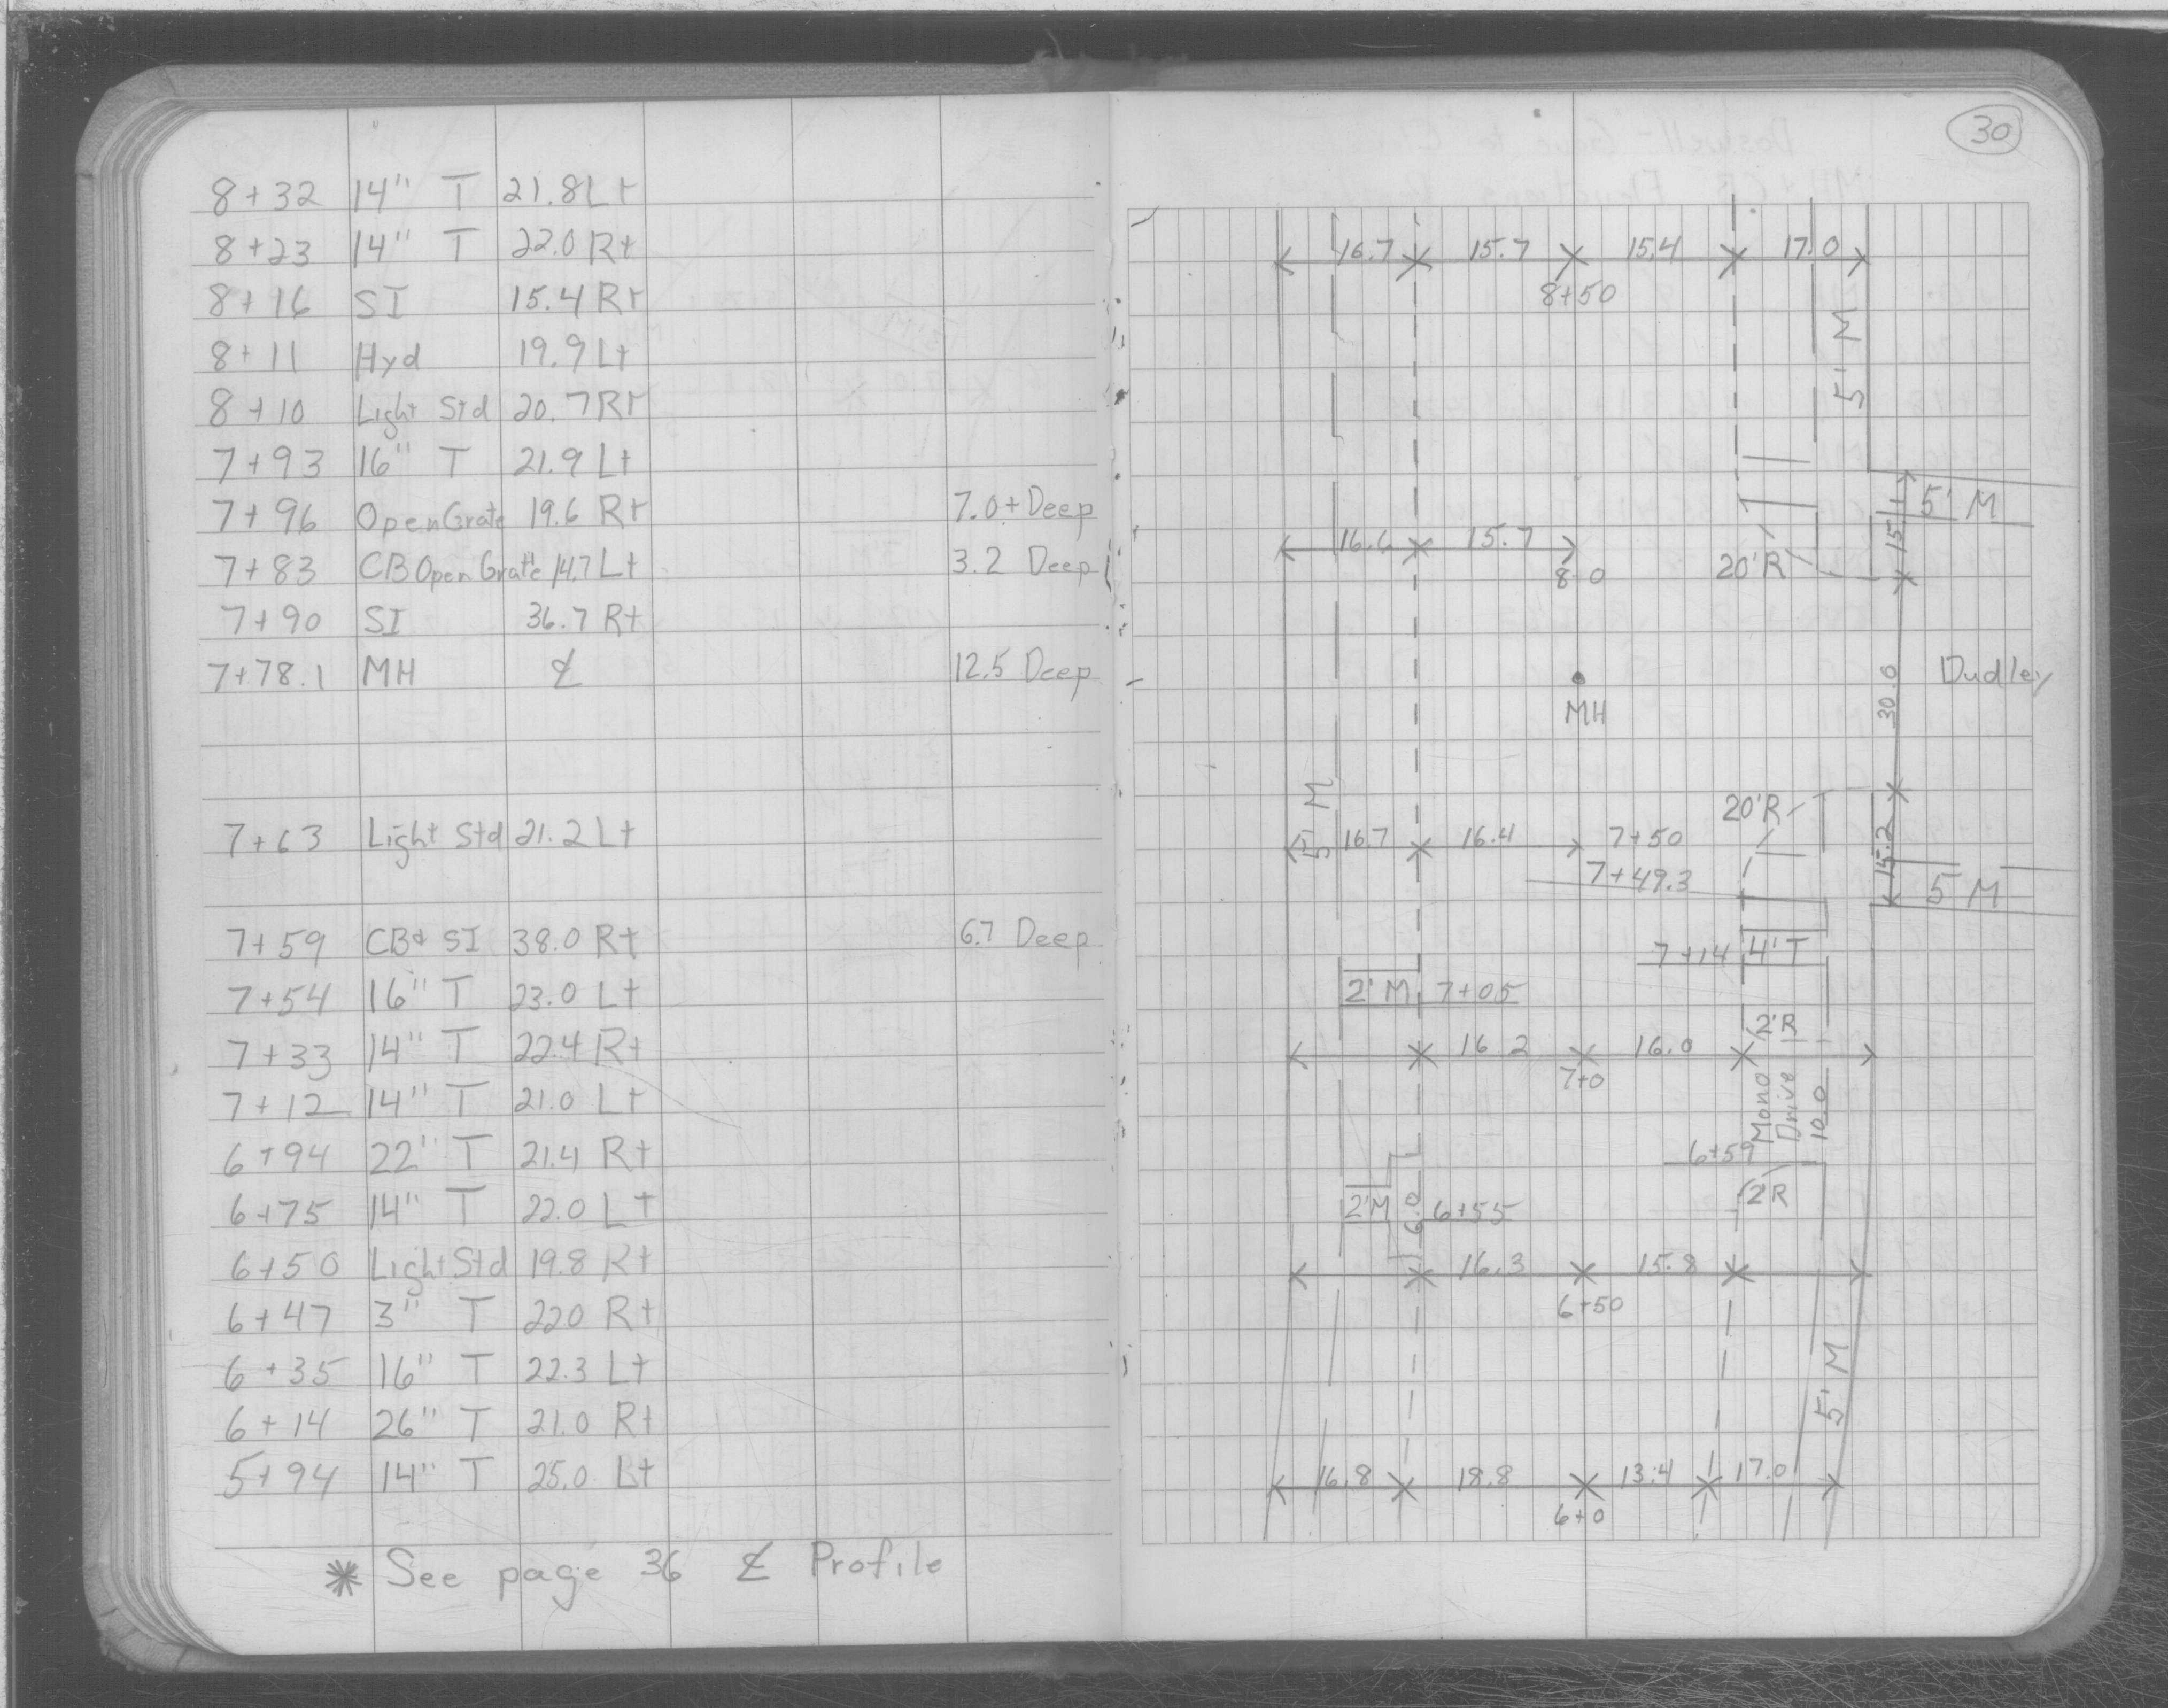 8+32 14" T 21.8 Lt
8+23 14" T 22.0 Rt
8+16 SI 15.4 Rt
8+11 Hyd 19.9 Lt
8+10 Light Std 20.7 Rt
7+93 16" T 21.9 Lt
7+96 Open Grate 19.6 Rt 7.0+ Deep
7+83 CB Open Grate 14.7 Lt 3.2 Deep
7+90 SI 36.7 Rt
7+78.1 MH ℄ 12.5 Deep
7+63 Light Std 21.2 Lt
7+59 CB+ SI 38.0 Rt 6.7 Deep
7+54 16" T 23.0 Lt
7+33 14" T 22.4 Rt
7+12 14" T 21.0 Lt
6+94 22" T 21.4 Rt
6+75 14" T 22.0 Lt
6+50 Light Std 19.8 Rt
6+47 3" T 22.0 Rt
6+35 16" T 22.3 Lt
6+14 26" T 21.0 Rt
5+94 14" T 25.0 Lt
* See page 36 ℄ Profile
30
16.7 15.7 15.4 17.0
8+50
5' M
5' M
15.1
16.6 15.7
8+0
20'R
30.0
Dudley
MH
5' M
20'R
16.7 16.4 7+50
15.2
7+49.3
5' M
7+14 4'T
2'M 7+05
2'R
16.2 16.0
7+0
Mono
Drive
10.0
6+59
2'R
2'M 6.0 6+55
16.3 15.8
6+50
5' M
16.8 18.8 13.4 17.0
6+0